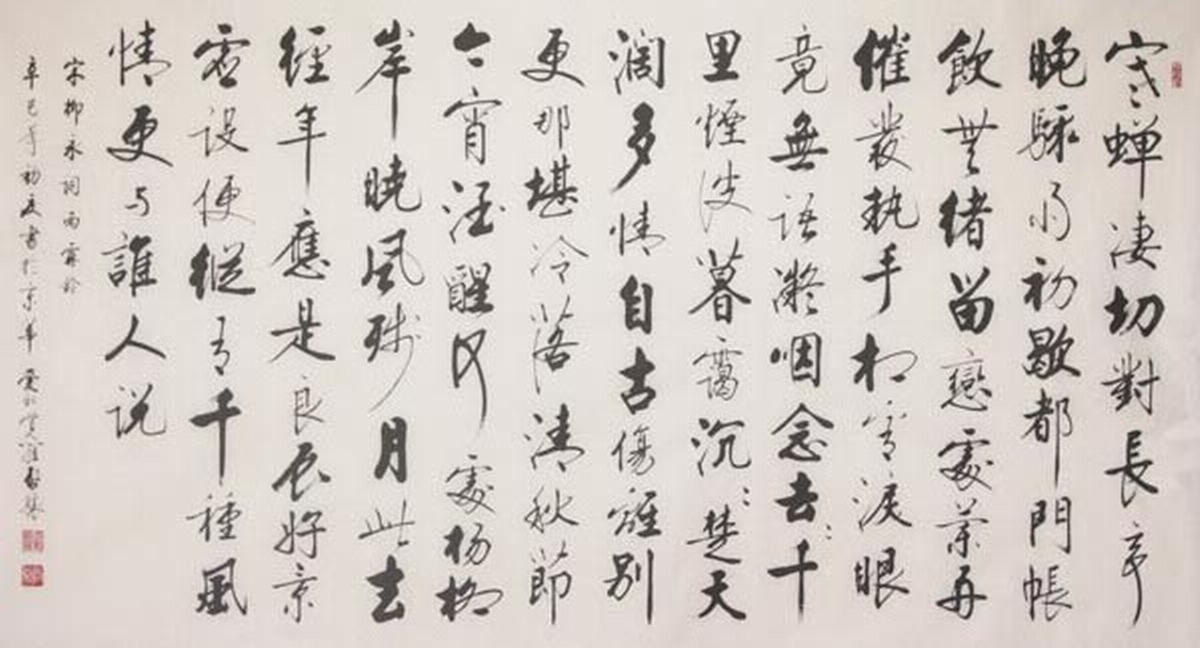 寒蟬淒切對長亭
晚驟雨初歇都門帳
飲無緒留戀處蘭舟
催發執手相看淚眼
竟無語凝咽念去々千
里煙波暮靄沉々楚天
闊多情自古傷離別
更那堪冷落清秋節
今宵酒醒何處楊柳
岸曉風殘月此去
經年應是良辰好景
虛設便縱有千種風
情更与誰人說
宋柳永詞雨霖鈴
辛巳年初夏書於京華